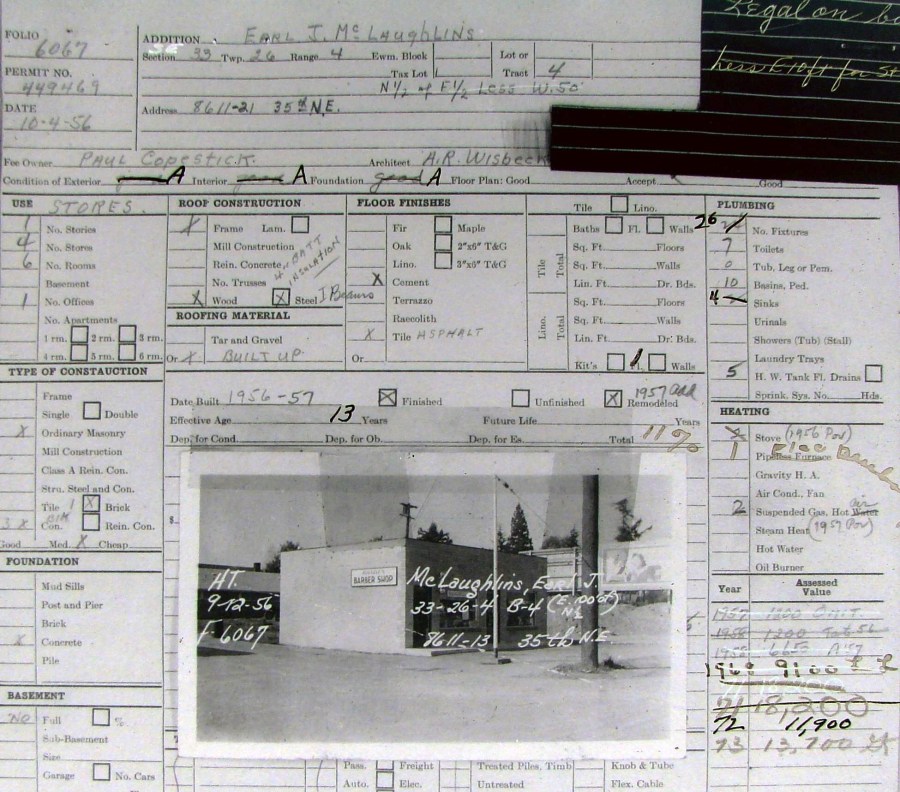 FOLIO
6067
PERMIT NO.
449469
DATE
10-4-56
ADDITION EARL J. McLAUGHLINS
Section 33 Twp. 26 Range 4 Ewm. Block Lot or
Tax Lot Tract 4
N 1/2 of E 1/2 LESS W. 50
Address 8611-21 35th N.E.
Legal on
less E 10 ft for St
Fee Owner PAUL COPESTICK. Architect A.R. WISBECK
Condition of Exterior good A Interior good A Foundation good A Floor Plan: Good Accept Good
USE STORES.
1 No. Stories
4 No. Stores
6 No. Rooms
Basement
1 No. Offices
No. Apartments
1 rm. 2 rm. 3 rm.
4 rm. 5 rm. 6 rm.
ROOF CONSTRUCTION
X Frame Lam.
Mill Construction
Rein. Concrete
No. Trusses
X Wood X Steel J. Beams
BATT INSULATION
ROOFING MATERIAL
Tar and Gravel
Or X BUILT UP
FLOOR FINISHES
Fir Maple
Oak 2"x6" T&G
Lino. 3"x6" T&G
X Cement
Terrazzo
Raecolith
X Tile ASPHALT
Or
Tile Lino.
Baths Fl. Walls
Tile Total
Sq. Ft. Floors
Sq. Ft. Walls
Lin. Ft. Dr. Bds.
Lino. Total
Sq. Ft. Floors
Sq. Ft. Walls
Lin. Ft. Dr. Bds.
Kit's Fl. Walls
PLUMBING
26 No. Fixtures
7 Toilets
0 Tub, Leg or Pem.
10 Basins, Ped.
4 Sinks
Urinals
Showers (Tub) (Stall)
Laundry Trays
5 H. W. Tank Fl. Drains
Sprink. Sys. No. Hds.
TYPE OF CONSTAUCTION
Frame
Single Double
X Ordinary Masonry
Mill Construction
Class A Rein. Con.
Stru. Steel and Con.
Tile X Brick
3 X Con. Blk Rein. Con.
Good Med. X Cheap
Date Built 1956-57 X Finished Unfinished X Remodeled 1957 add
Effective Age 13 Years Future Life Years
Dep. for Cond. Dep. for Ob. Dep. for Es. Total 11%
HEATING
X Stove (1956 Por)
1 Pipeless Furnace Elec
Gravity H. A.
Air Cond., Fan
2 Suspended Gas, Hot Water air
Steam Heat (1957 Por)
Hot Water
Oil Burner
FOUNDATION
Mud Sills
Post and Pier
Brick
X Concrete
Pile
BASEMENT
NO Full %
Sub-Basement
Size
Garage No. Cars
BARBER SHOP
H.T.
9-12-56
F 6067
McLaughlins, Earl J.
33-26-4 B-4 (E. 100 of)
N 1/2
8611-13 35th N.E
Year Assessed Value
1957 1200 Omit
1958 1200
1958
1960 9100
71 18,200
72 11,900
73 13,700
Pass. Freight Treated Piles, Timb Knob & Tube
Auto. Elec. Untreated Flex. Cable